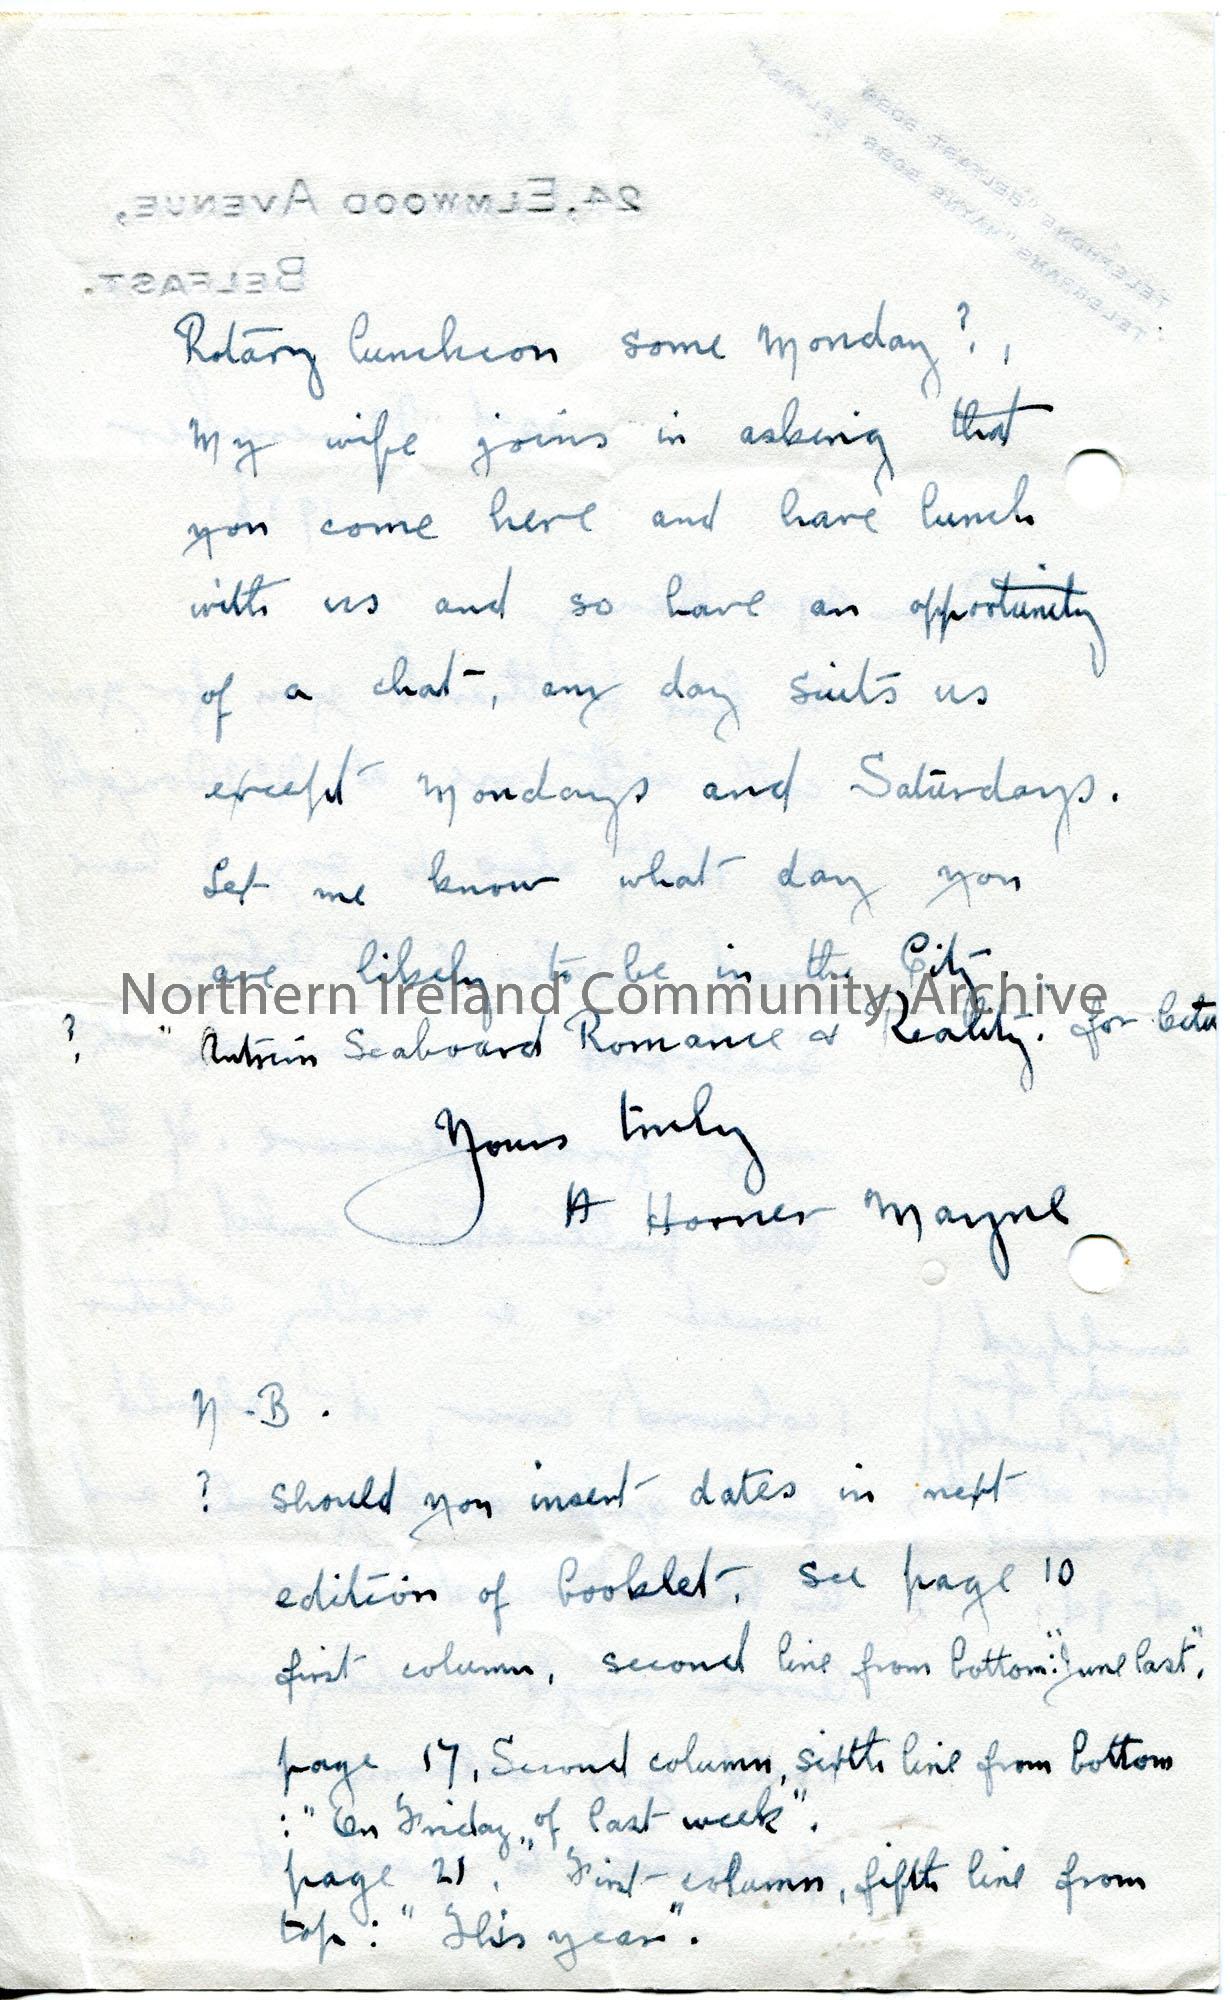 24, ELMWOOD AVENUE,
BELFAST.
TELEPHONE "BELFAST
TELEGRAMS "MAYNE BELFAST"
Rotary luncheon some Monday?,
My wife joins in asking that
you come here and have lunch
with us and so have an opportunity
of a chat, any day suits us
except Mondays and Saturdays.
Let me know what day you
are likely to be in the City
Northern Ireland Community Archive
? "Antrim Seaboard Romance & Reality. for
Yours truly
H Horner Mayne
N-B.
? should you insert dates in next
edition of booklet. see page 10
first column, second line from bottom: "June last".
page 17, Second column, sixth line from bottom
: "On Friday of last week".
page 21. First column, fifth line from
top: "This year".